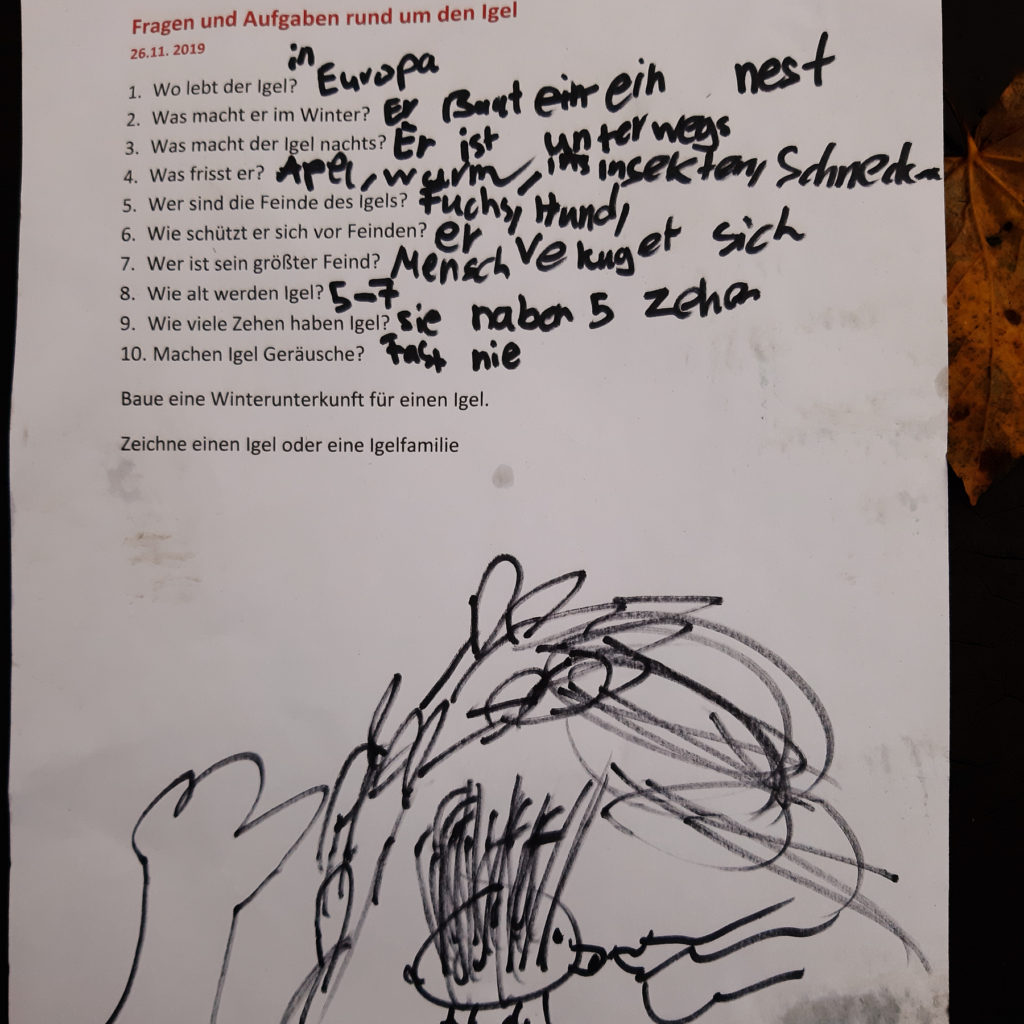 Fragen und Aufgaben rund um den Igel
26.11. 2019
1. Wo lebt der Igel? in Europa
2. Was macht er im Winter? Er Baut ein nest
3. Was macht der Igel nachts? Er ist unterwegs
4. Was frisst er? Apel, wurm, insekten, Schneck
5. Wer sind die Feinde des Igels? Fuchs, Hund,
6. Wie schützt er sich vor Feinden? er vekuget sich
7. Wer ist sein größter Feind? Mensch
8. Wie alt werden Igel? 5-7
9. Wie viele Zehen haben Igel? sie haben 5 zehen
10. Machen Igel Geräusche? Fast nie
Baue eine Winterunterkunft für einen Igel.
Zeichne einen Igel oder eine Igelfamilie